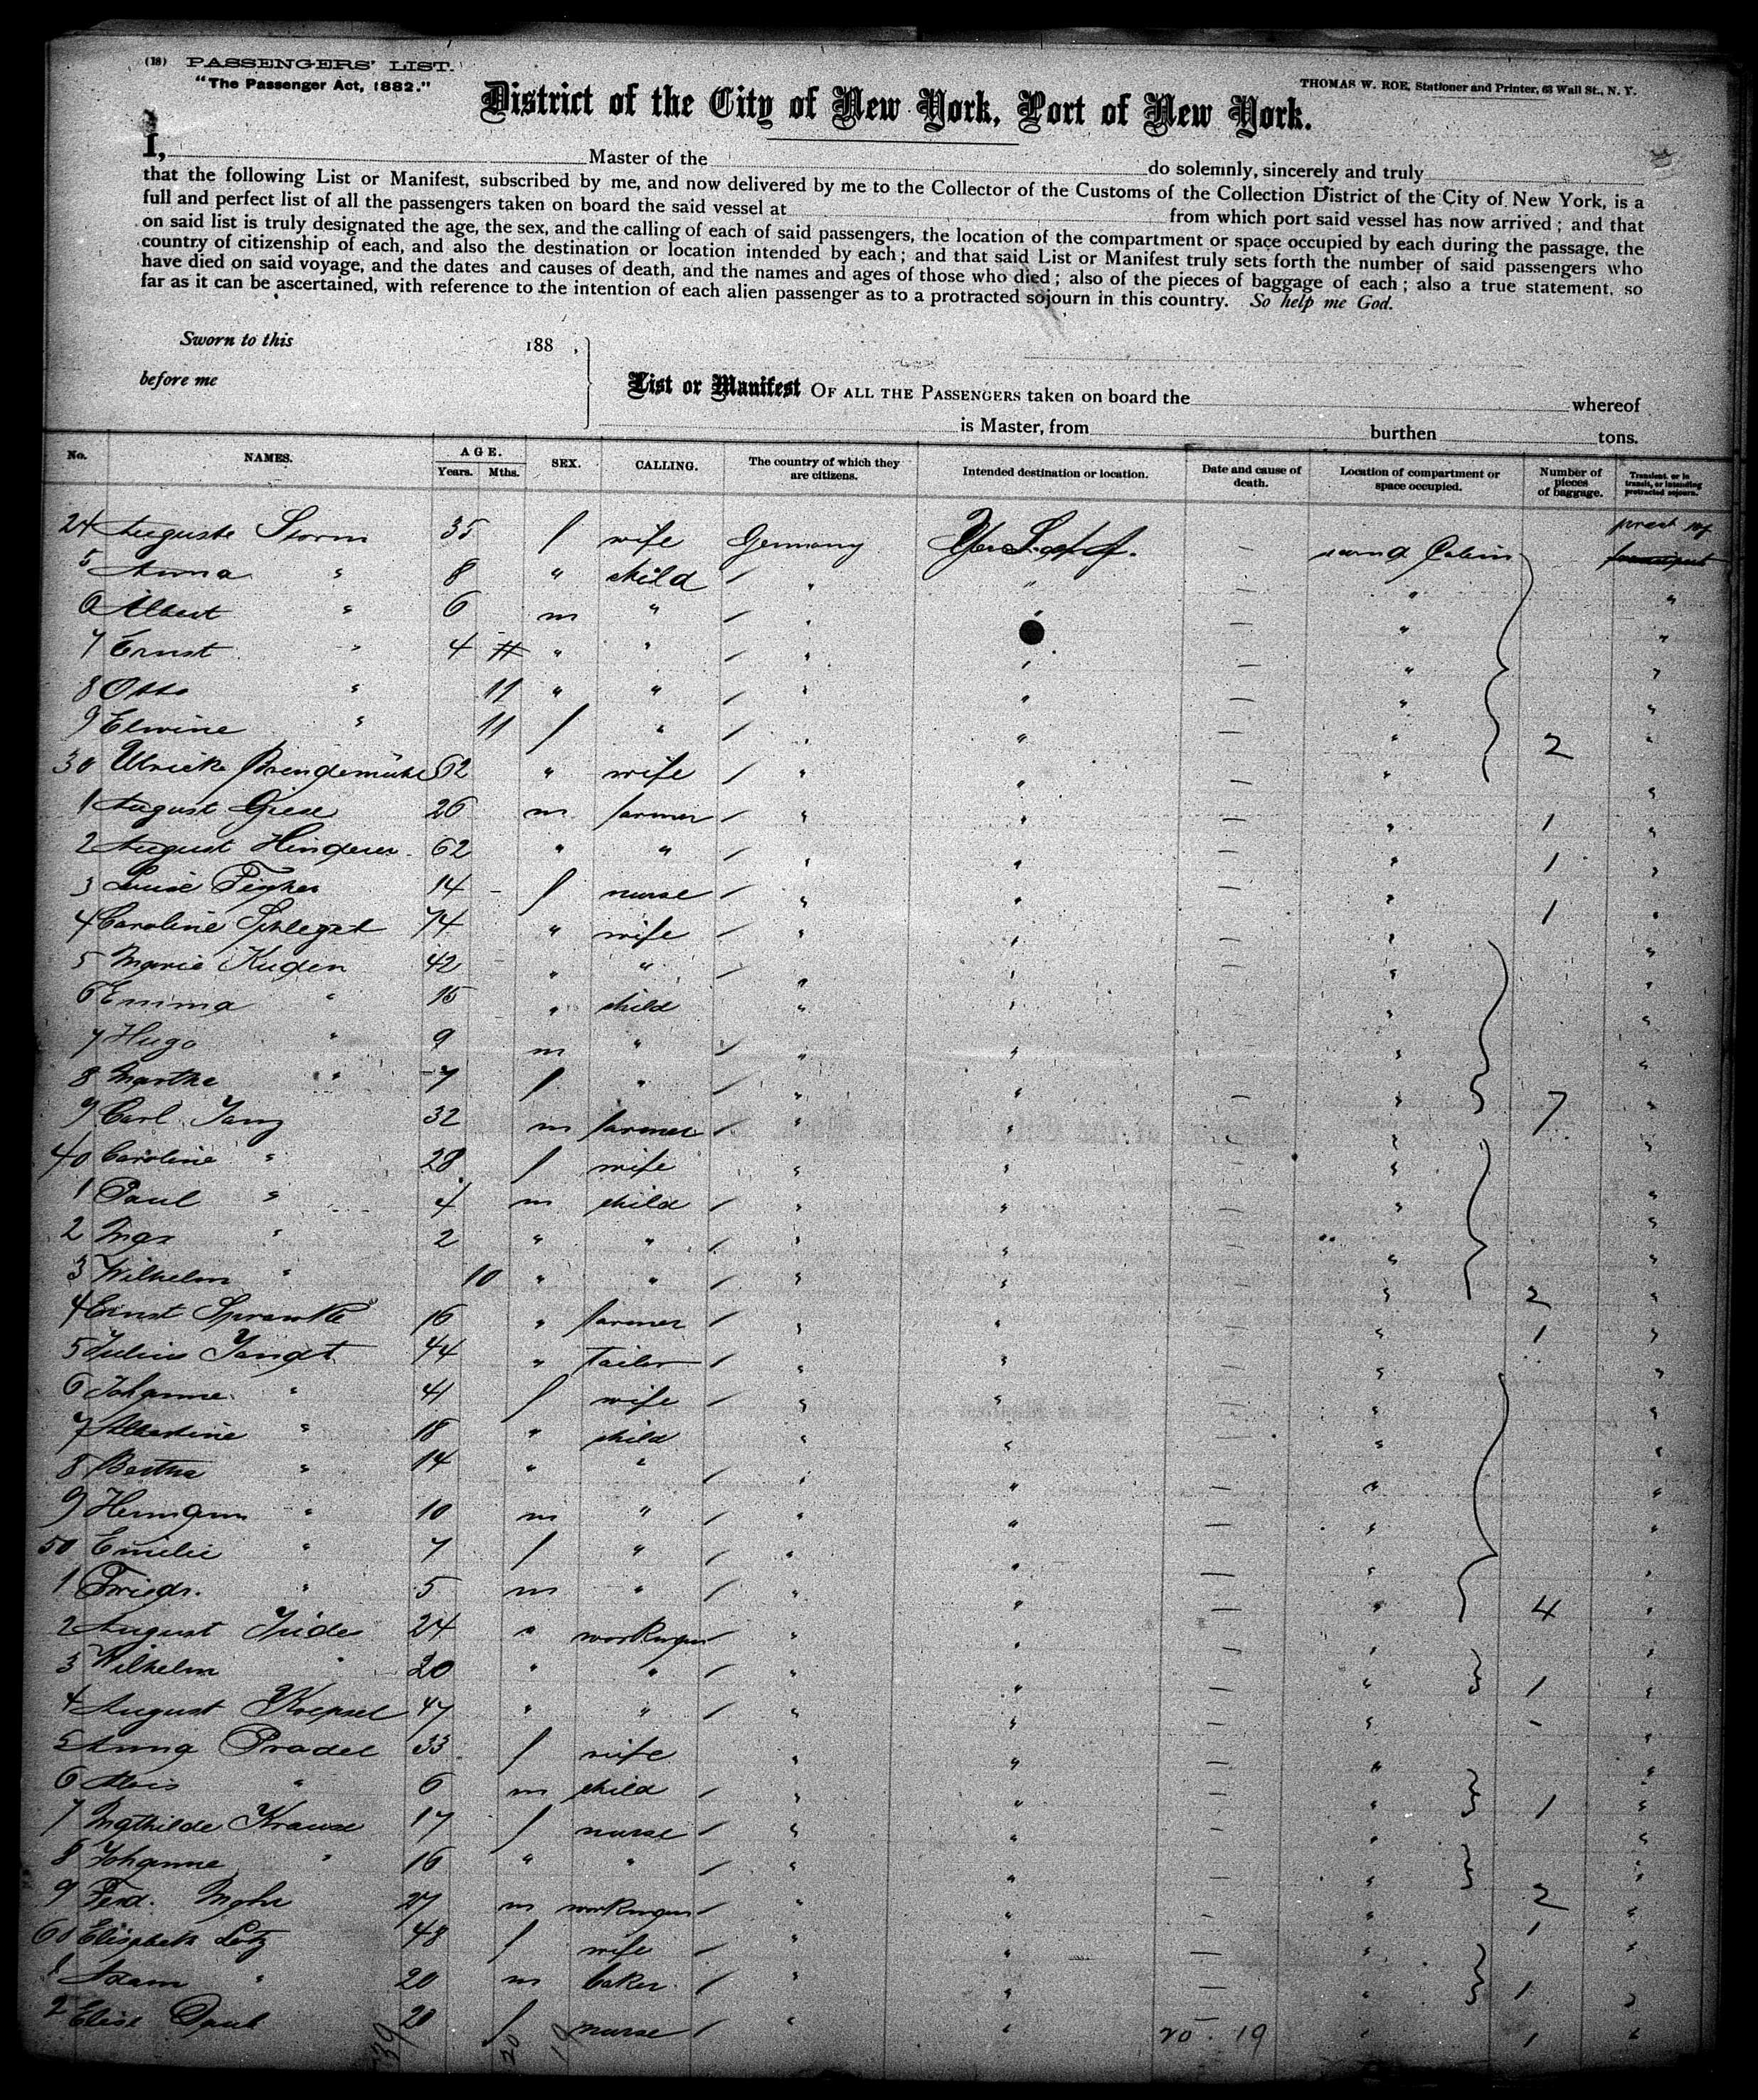 (18) PASSENGERS' LIST.
"The Passenger Act, 1882."
THOMAS W. ROE, Stationer and Printer, 63 Wall St., N. Y.
District of the City of New York, Port of New York.
I, Master of the do solemnly, sincerely and truly
that the following List or Manifest, subscribed by me, and now delivered by me to the Collector of the Customs of the Collection District of the City of New York, is a
full and perfect list of all the passengers taken on board the said vessel at from which port said vessel has now arrived; and that
on said list is truly designated the age, the sex, and the calling of each of said passengers, the location of the compartment or space occupied by each during the passage, the
country of citizenship of each, and also the destination or location intended by each; and that said List or Manifest truly sets forth the number of said passengers who
have died on said voyage, and the dates and causes of death, and the names and ages of those who died; also of the pieces of baggage of each; also a true statement, so
far as it can be ascertained, with reference to the intention of each alien passenger as to a protracted sojourn in this country. So help me God.
Sworn to this 188 ,
before me
List or Manifest OF ALL THE PASSENGERS taken on board the whereof
is Master, from burthen tons.
No. NAMES. AGE. Years. Mths. SEX. CALLING. The country of which they are citizens. Intended destination or location. Date and cause of death. Location of compartment or space occupied. Number of pieces of baggage. Transient, or in transit, or intending protracted sojourn.
24 Auguste Storm 35 f wife Germany — Cabin
5 Anna " 8 " child / " " — " "
6 Albert " 6 m " / " " — " "
7 Ernst " 4 " " / " " — " "
8 Otto " 11 " " / " " — " "
9 Elwine " 11 f " / " " — " 2 "
30 Ulricke 62 " wife / " " — " "
1 August Giese 26 m farmer / " " — " 1 "
2 August Hinderer 62 " " / " " — " 1 "
3 Luise 14 - f nurse / " " — " 1 "
4 Caroline 74 " wife / " " — " "
5 Marie Kuden 42 " " / " " — " "
6 Emma " 15 " child " " — " "
7 Hugo " 9 m " / " " — " "
8 Martha " 7 f " / " " — " 7 "
9 Carl 32 m farmer / " " — " "
40 Caroline " 28 f wife " " — " "
1 Paul " 4 m child / " " — " "
2 Max " 2 " " / " " — " "
3 Wilhelm " 10 " " / " " — " 2 "
4 Ernst 16 " farmer / " " — " 1 "
5 Julius 44 " Tailor / " " — " "
6 Johanne " 41 f wife / " " — " "
7 Albertine " 18 " child " " — " "
8 Bertha " 14 " " / " " — " "
9 Hermann " 10 m " / " " — " "
50 Emilie " 7 f " / " " — " "
1 Friedr. " 5 m " / " " — " 4 "
2 August 24 " workman / " " — " "
3 Wilhelm " 20 " " / " " — " 1 "
4 August Krepsel 47 " " / " " — " - "
5 Anna Pradel 33 f wife " " — " "
6 Alois " 6 m child / " " — " 1 "
7 Mathilde Krause 17 f nurse / " " — " "
8 Johanne " 16 " " / " " — " 2 "
9 Ferd. Mohr 27 m workman / " " — " 1 "
60 Elisabeth Lotz 48 f wife / " " — " "
1 Adam " 20 m baker / " " — " 1 "
2 Elise Daub 20 f nurse / " " " 1 "
39 20 19 20 . 19